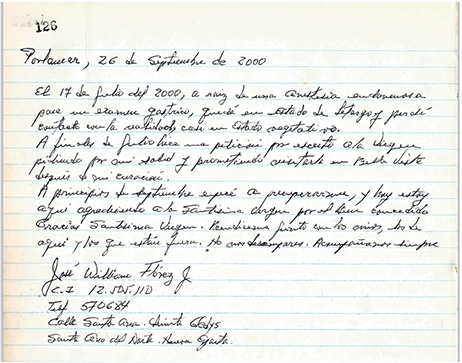 126
Porlamar, 26 de Septiembre de 2000
El 17 de Julio del 2000, a raiz de una anestesia endovenosa
para un examen gastrico, quedé en estado de letargo y perdí
contacto con la realidad, casi en estado vegetativo.
A finales de Julio hice una petición por escrito a la Virgen
pidiendo por mi salud y prometiendo visitarte en Bella Vista
después de mi curación.
A principios de septiembre empecé a recuperarme, y hoy estoy
aquí agradeciendo a la Santísima Virgen por el bien concedido
Gracias Santísima Virgen. junto con los míos, los de
aquí y los que estan fuera. No nos desampares. Acompáñanos siempre
José William Flórez J.
C.I 12.505.110
Telf 570684
Calle Santa Ana. Quinta Gladys
Santa Ana del Norte. Nueva Esparta.